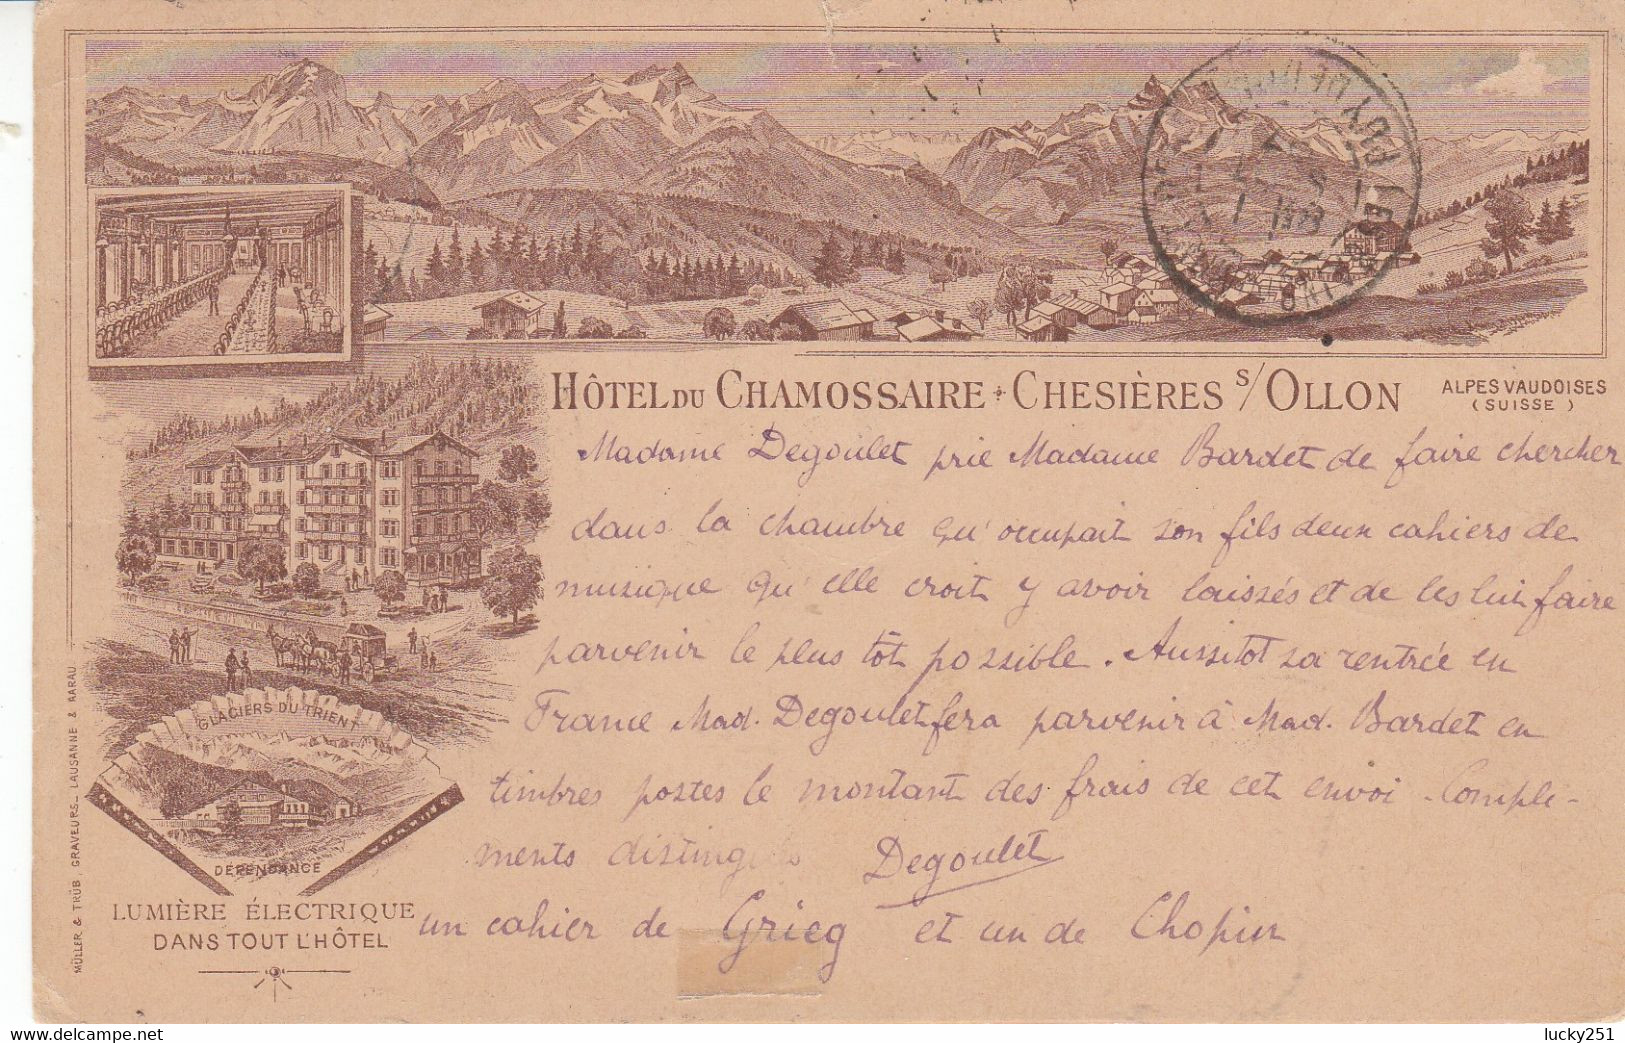 HÔTEL DU CHAMOSSAIRE + CHESIÈRES S/OLLON
ALPES VAUDOISES
(SUISSE)
Madame Degoulet prie Madame Bardet de faire chercher
dans la chambre qu'occupait son fils deux cahiers de
musique qu'elle croit y avoir laissés et de les lui faire
parvenir le plus tôt possible. Aussitot sa rentrée en
France Mad. Degoulet fera parvenir à Mad. Bardet en
timbres postes le montant des frais de cet envoi. Comple-
ments distingués Degoulet
un cahier de Grieg et un de Chopin
GLACIERS DU TRIENT
DÉPENDANCE
LUMIÈRE ÉLECTRIQUE
DANS TOUT L'HÔTEL
MÜLLER & TRÜB, GRAVEURS_ LAUSANNE & AARAU
PUY DE
lucky251